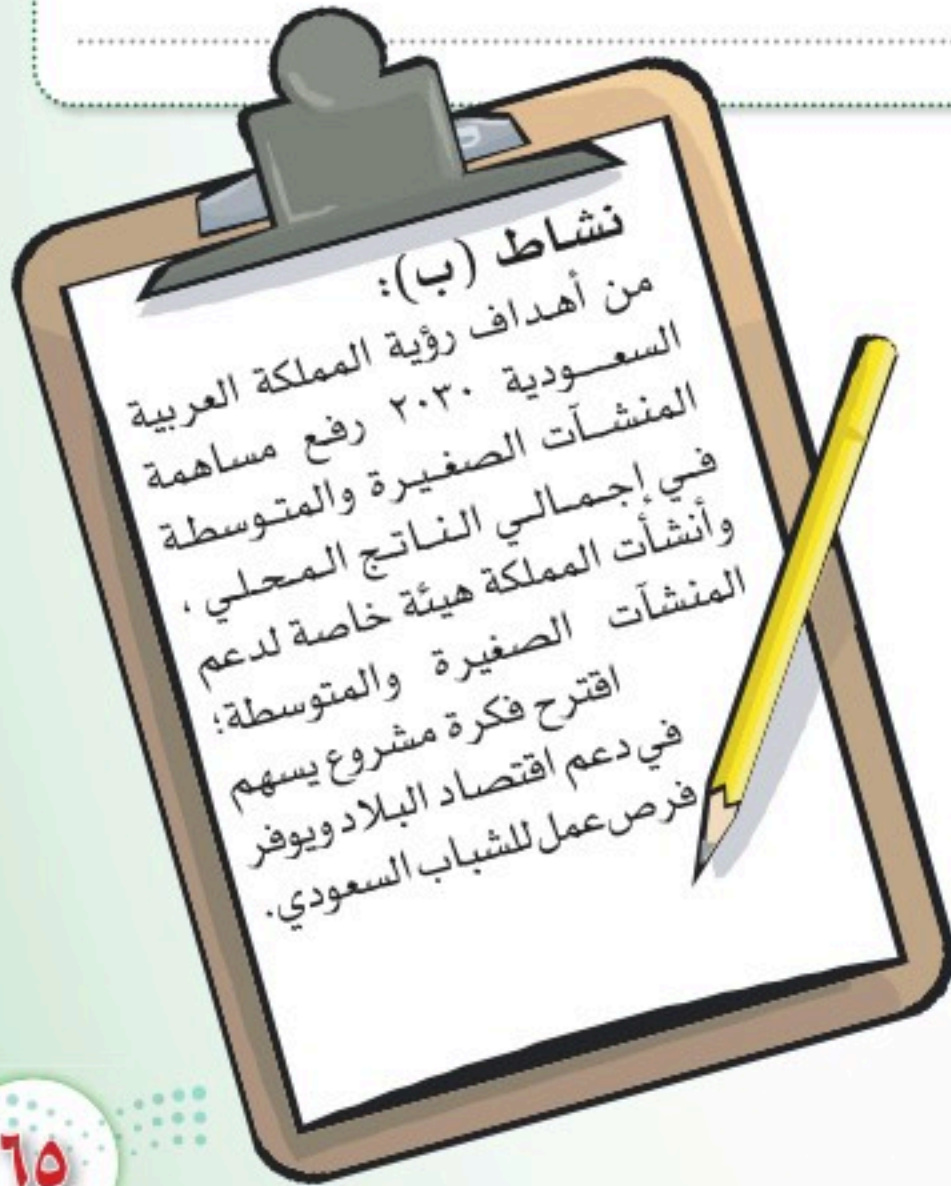 نشاط (ب):
من أهداف رؤية المملكة العربية
السعـودية ٢٠٣٠ رفع مساهمة
المنشـآت الصغـيـرة والمتـوسطـة
فـي إجـمـالـي الـنـاتـج الـمـحـلـي ،
وأنشأت المملكة هيئة خاصة لدعم
المنشآت الصغيرة والمتوسطة؛
اقترح فكرة مشروع يسهم
في دعم اقتصاد البلاد ويوفر
فرص عمل للشباب السعودي.
٦٥